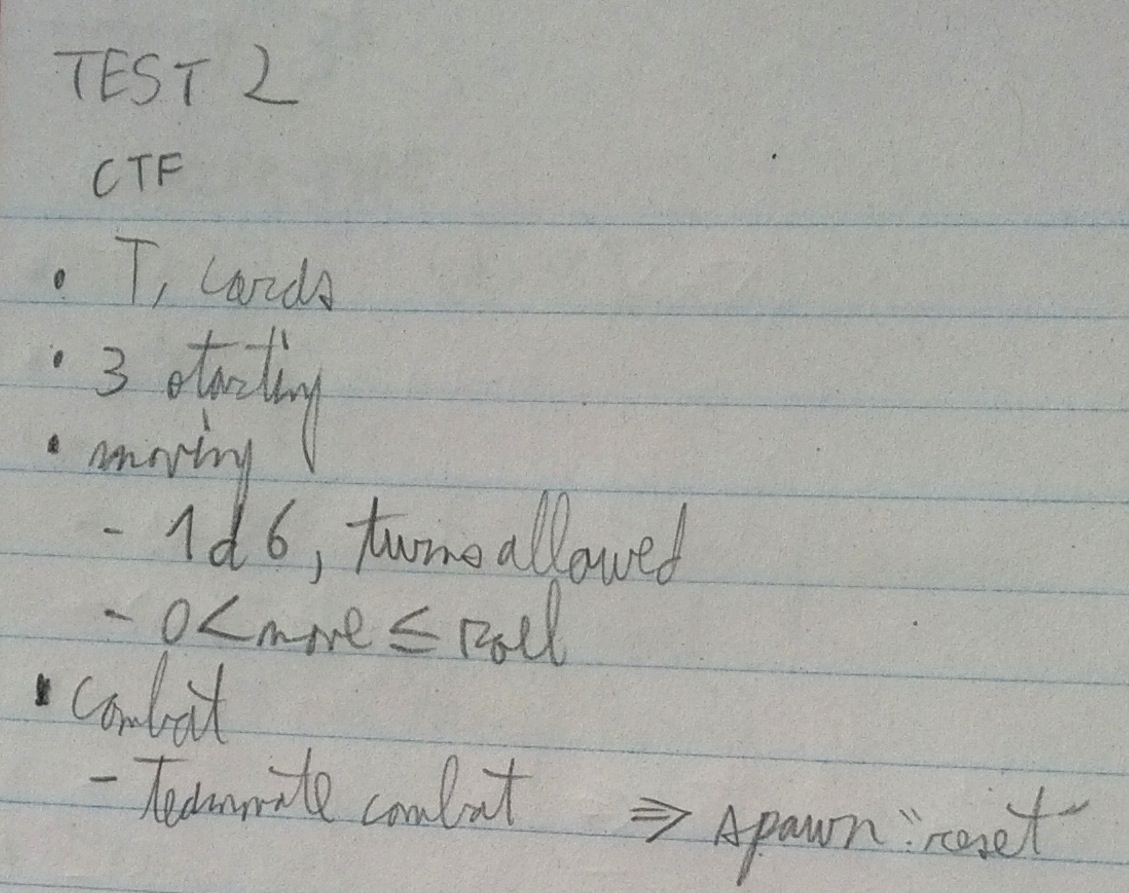 TEST 2
CTF
• T, cards
• 3 starting
• moving
- 1d6, turns allowed
- 0 < move ≤ roll
• combat
- Teammate combat ⇒ spawn "reset"